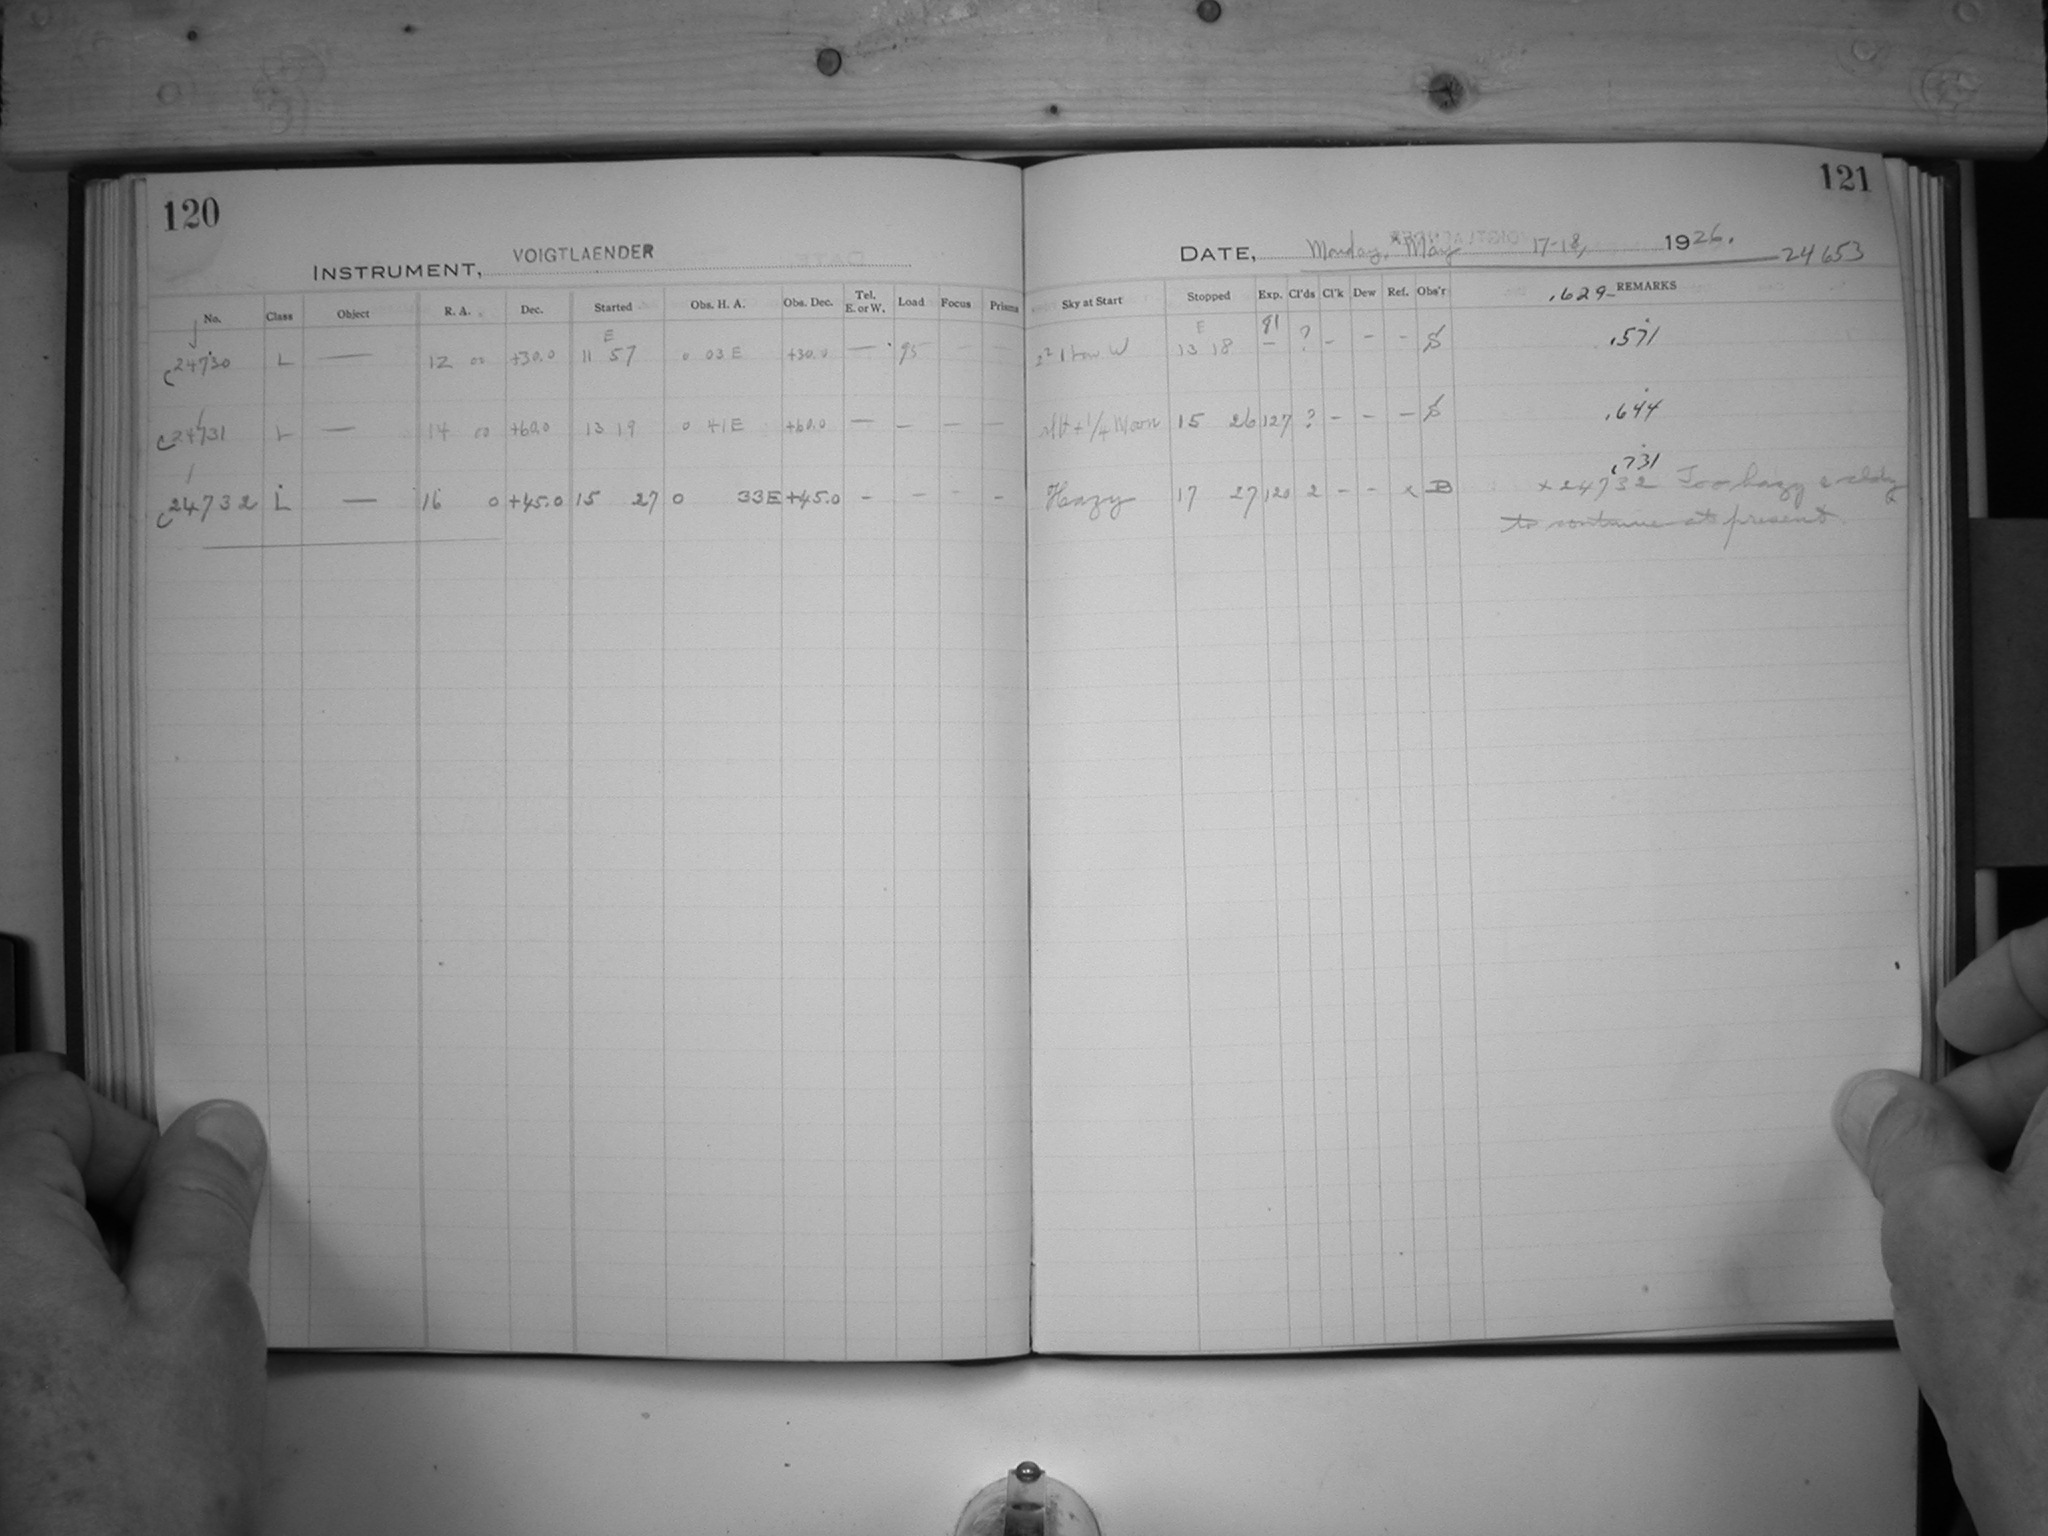 120
INSTRUMENT, VOIGTLAENDER
No. Class Object R. A. Dec. Started Obs. H. A. Obs. Dec. Tel. E. or W. Load Focus Prisms
E
C24730 L — 12 00 +30.0 11 57 0 03 E +30.0 — 95 — —
C24731 L — 14 00 +60.0 13 19 0 41 E +60.0 — — — —
C24732 L — 16 0 +45.0 15 27 0 33E +45.0 - - - -
121
DATE, Monday, May 17-18, 1926.
24653
Sky at Start Stopped Exp. Cl'ds Cl'k Dew Ref. Obs'r .629 REMARKS
E
W 13 18 81 ? - - - .571
+ 1/4 Moon 15 26 127 ? - - - .644
.731
Hazy 17 27 120 2 - - x B x 24732 Too hazy & cldy
to continue at present.